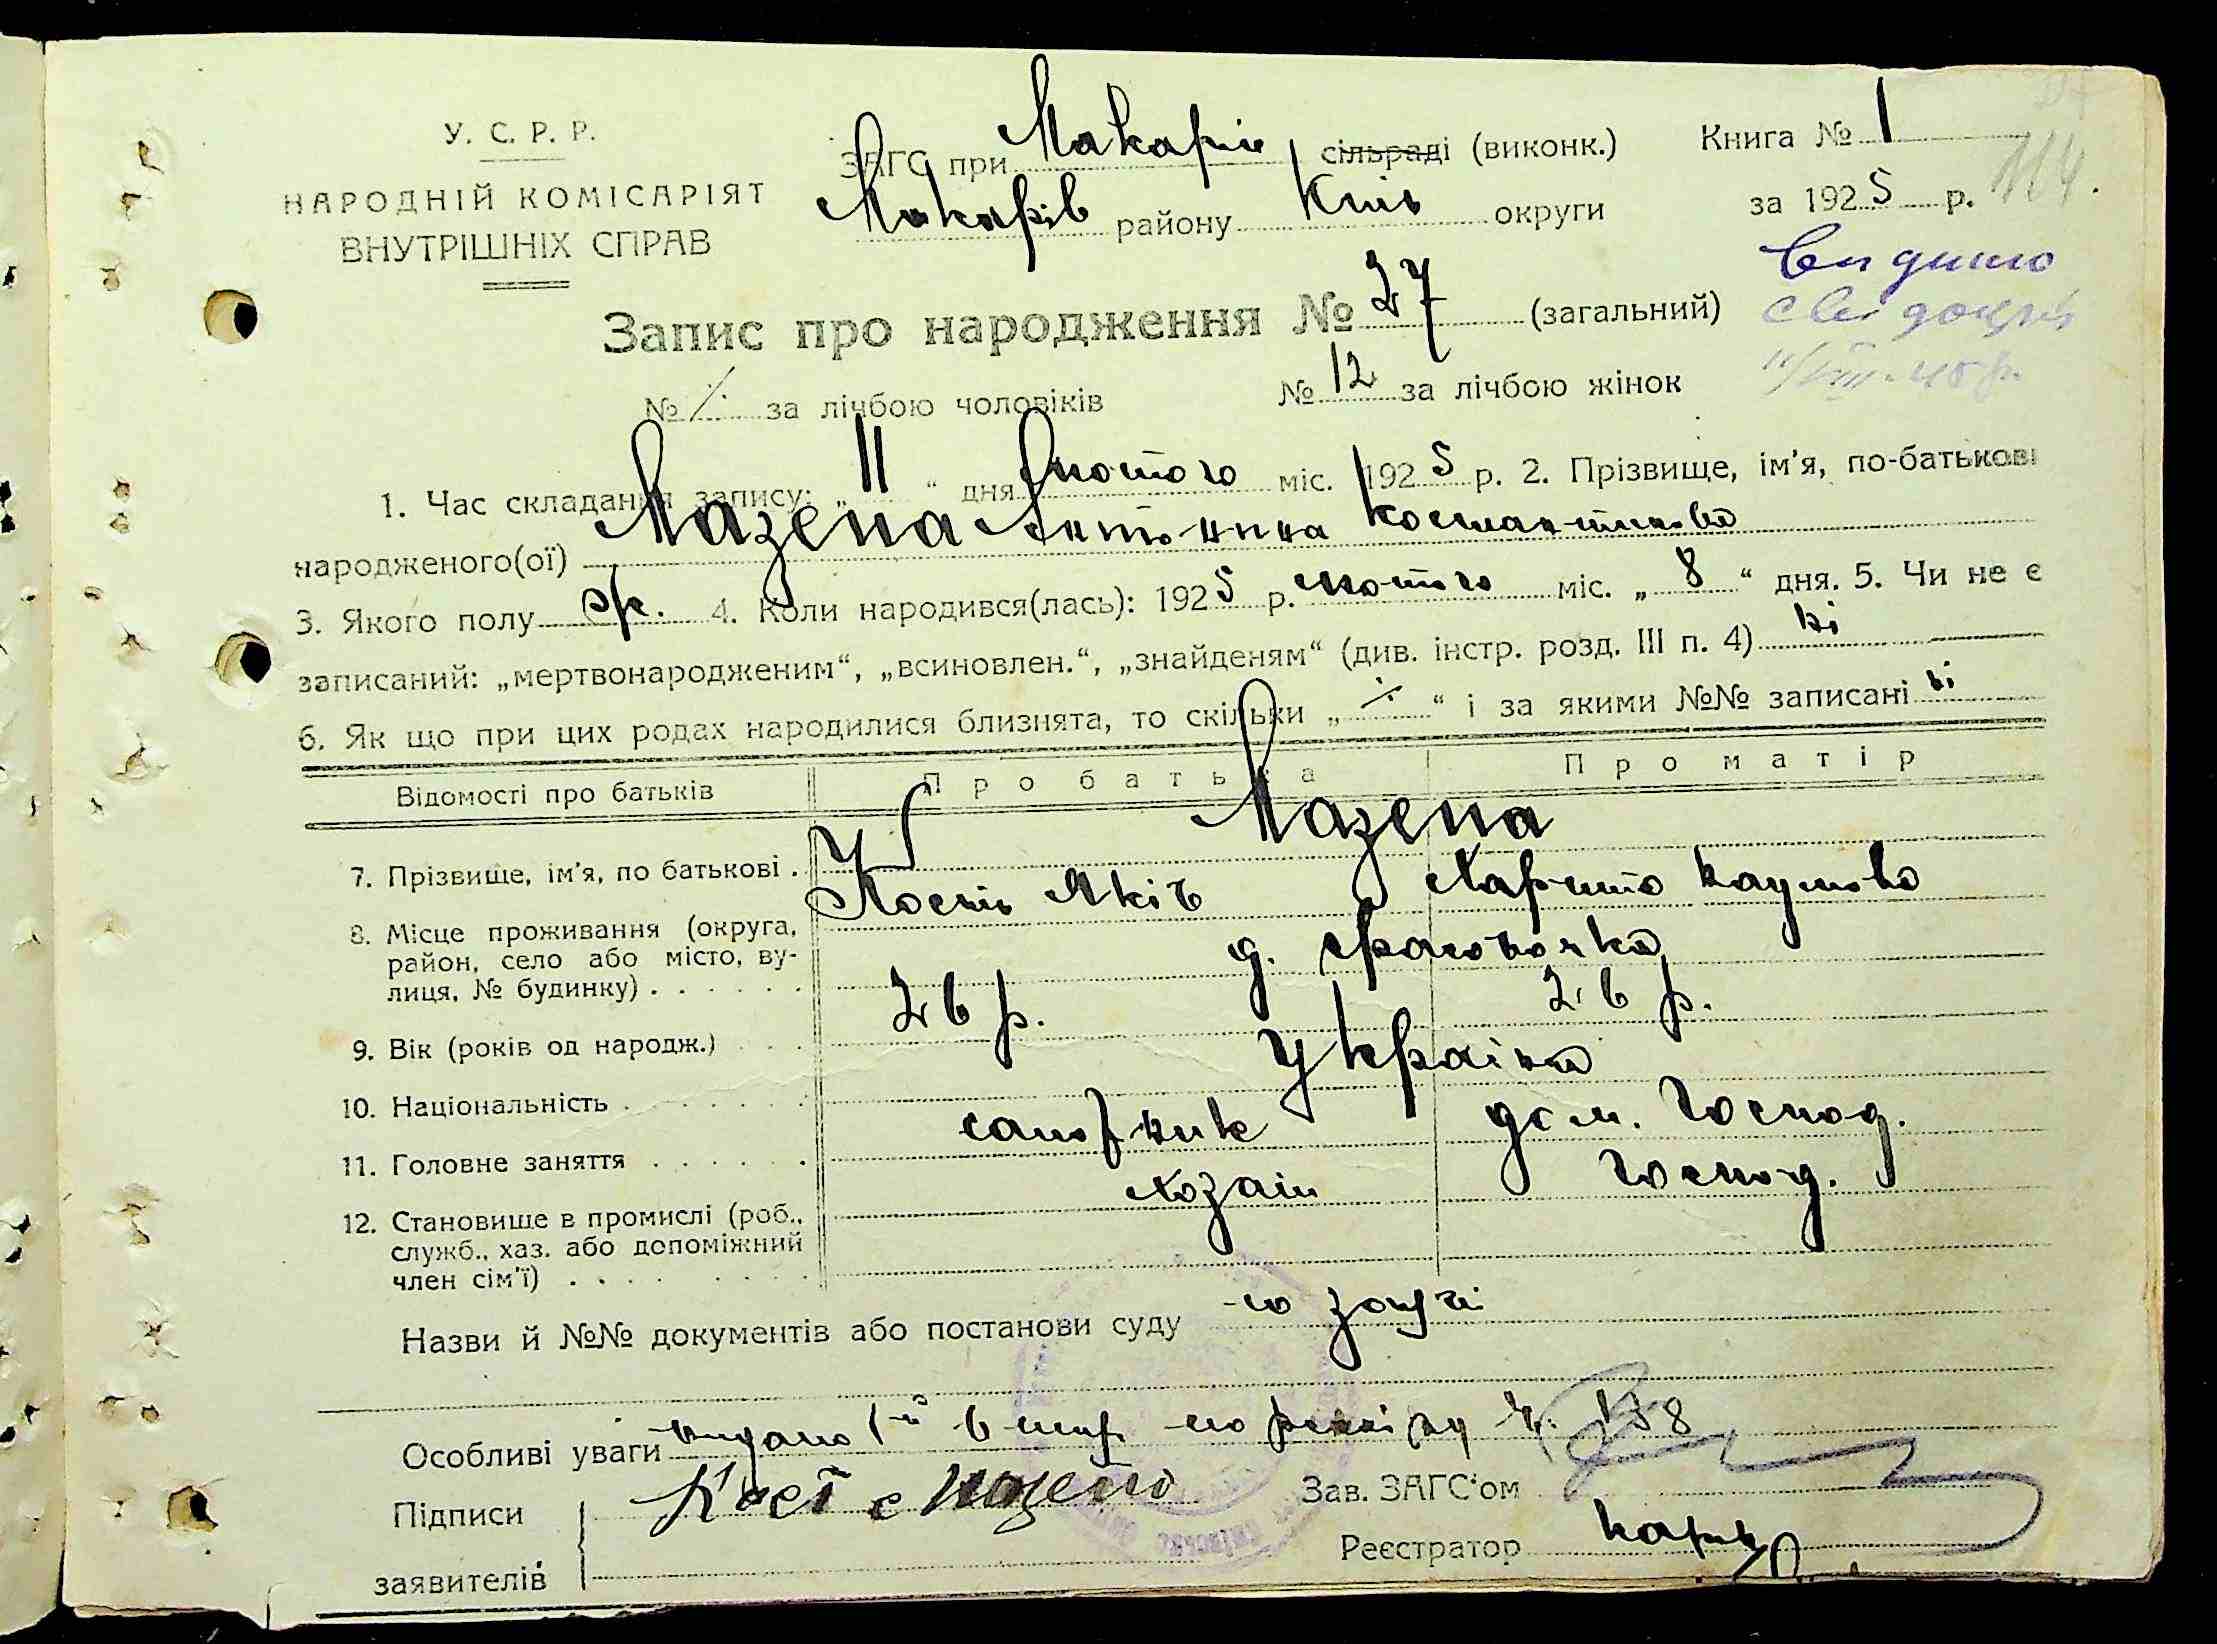 У. С. Р. Р.
НАРОДНІЙ КОМІСАРІЯТ
ВНУТРІШНІХ СПРАВ
ЗАГС при Макарів сільраді (виконк.)
Макарів району Київ округи
Книга № 1
за 1925 р. 114.
Видано
свідоцтв
Запис про народження № 27 (загальний)
№ /. за лічбою чоловіків № 12 за лічбою жінок
1. Час складання запису: „ 11 “ дня лютого міс. 1925 р. 2. Прізвище, ім'я, по-батькові
народженого(ої) Мазепа Антоніна Костянтинова
3. Якого полу ж. 4. Коли народився(лась): 1925 р. лютого міс. „ 8 “ дня. 5. Чи не є
записаний: „мертвонародженим“, „всиновлен.“, „знайденям“ (див. інстр. розд. III п. 4) ні
6. Як що при цих родах народилися близнята, то скільки „ ./. “ і за якими №№ записані ні
Відомості про батьків Про батька Про матір
7. Прізвище, ім'я, по батькові . Мазепа
Кость Яків Харита Наумова
8. Місце проживання (округа,
район, село або місто, ву-
лиця, № будинку) . . . . . . д.
9. Вік (років од народж.) . . . 26 р. 26 р.
10. Національність . . . . . . . Україна
11. Головне заняття . . . . . . дом. господ.
12. Становище в промислі (роб.,
служб., хаз. або допоміжний
член сім'ї) . . . . . . . . Хозаін господ.
Назви й №№ документів або постанови суду по заяві
Особливі уваги видано 1-й
Підписи
заявителів
Кость Мазепа
Зав. ЗАГС'ом
Реєстратор